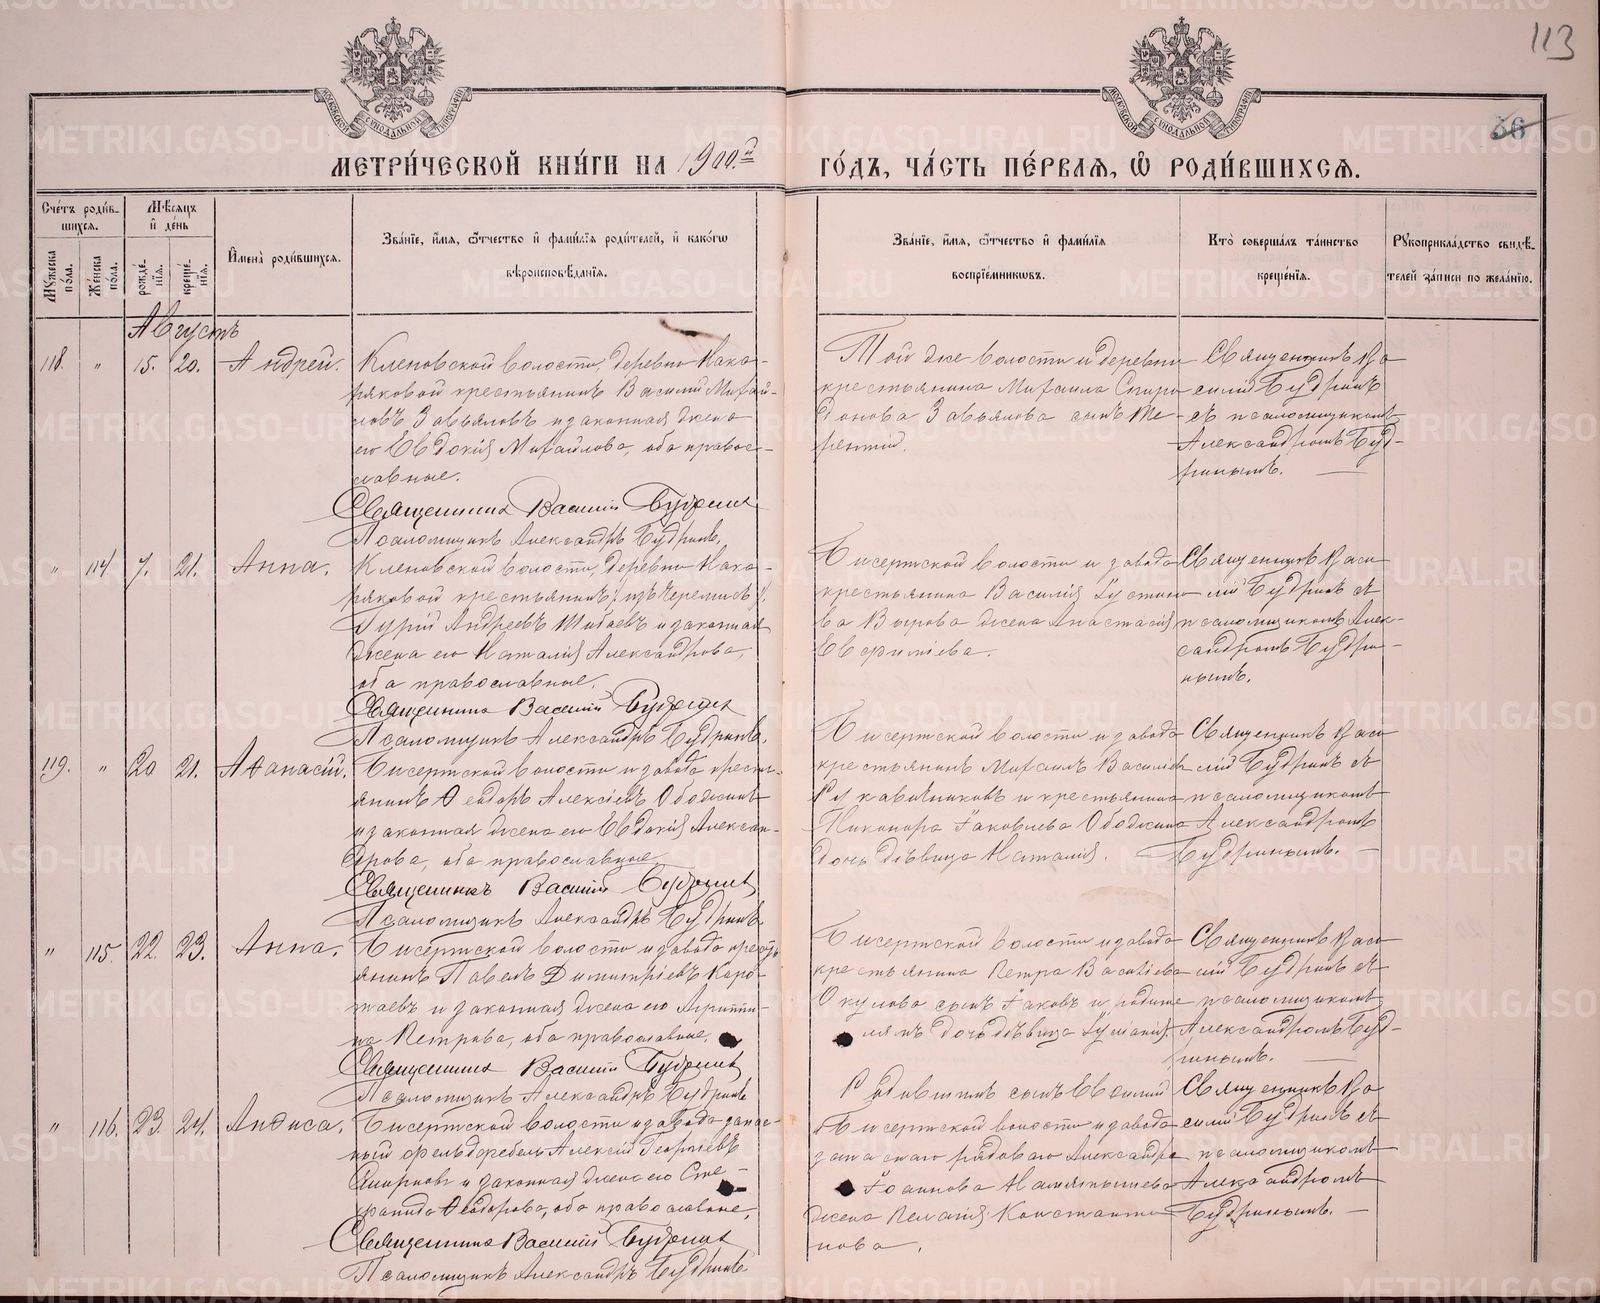 113
36
МЕТРИ́ЧЕСКОЙ КНИ́ГИ НА 1900.й ГО́ДЪ, ЧА́СТЬ ПЕ́РВАЯ, Ѡ РОДИ́ВШИХСЯ.
Сче́тъ роди́в-
шихся.
Мѣ́сяцъ
и де́нь
Му́жеска
по́ла.
Же́нска
по́ла.
рожде́-
нія.
креще́-
нія.
Имена̀ роди́вшихся.
Зва́ніе, и́мя, о́тчество и фами́лія роди́телей, и како́гѡ
вѣроисповѣ́данія.
Зва́ніе, и́мя, ѻ́тчество и фами́лія
воспріе́мникѡвъ.
Кто̀ соверша́лъ та́инство
креще́нія.
Рꙋкоприкла́дство свидѣ́-
телей за́писи по жела́нію.
Августъ
118. " 15. 20. Андрей.
Кленовской волости, деревни Нака-
ряковой крестьянинъ Василій Михай-
ловъ Завьяловъ и законная жена
его Евдокія Михайлова, оба правос-
лавные.
Священникъ Василій Будринъ
Псаломщикъ Александръ Будринъ.
Той же волости и деревни
крестьянина Михаила Спири
донова Завьялова сынъ Те-
рентій.
Священникъ Ва
силій Будринъ
съ псаломщикомъ
Александромъ Буд-
ринымъ.
" 114 7. 21. Анна.
Кленовской волости, деревни Нака-
ряковой крестьянинъ /изъ черемисъ/
Гурій Андреевъ Шибаевъ и законная
жена его Наталія Александрова,
оба православные.
Священникъ Василій Будринъ
Псаломщикъ Александръ Будринъ.
Бисертской волости и завода
крестьянина Василія Іустино
ва Вырова жена Анастасія
Евсигніева.
Священникъ Васи
лій Будринъ съ
псаломщикомъ Алек-
сандромъ Будри-
нымъ.
119. " 20 21. Аѳанасій.
Бисертской волости и завода кресть-
янинъ Ѳеодоръ Алексіевъ Ободжинъ
и законная жена его Евдокія Алексан-
дрова, оба православные
Священникъ Василій Будринъ
Псаломщикъ Александръ Будринъ
Бисертской волости и завода
крестьянинъ Михаилъ Василіевъ
Рукавичниковъ и крестьянина
Никонора Іаковлева Ободжина
дочь дѣвица Наталія.
Священникъ Васи
лій Будринъ съ
псаломщикомъ
Александромъ
Будринымъ.
" 115. 22. 23. Анна.
Бисертской волости и завода кресть-
янинъ Павелъ Димитріевъ Коро-
таевъ и законная жена его Агриппи-
на Петрова, оба православные.
Священникъ Василій Будринъ
Псаломщикъ Александръ Будринъ
Бисертской волости и завода
крестьянина Петра Василіева
Окулова сынъ Іаковъ и родите
ля нъ дочь дѣвица Іуліанія.
Священникъ Васи
лій Будринъ съ
псаломщикомъ
Александромъ Буд-
ринымъ.
" 116. 23. 24. Анѳиса.
Бисертской волости и завода запас-
ный фельдфебель Алексій Георгіевъ
Смирновъ и законная жена его Сте-
фанида Ѳеодорова, оба православные.
Священникъ Василій Будринъ
Псаломщикъ Александръ Будринъ
сынъ Евѳимій
Бисертской волости и завода
запаснаго рядоваго Александра
Іоаннова
жена Пелагія Константи
нова.
Священникъ Ва
силій Будринъ съ
псаломщикомъ
Александромъ
Будринымъ.
METRIKI.GASO-URAL.RU